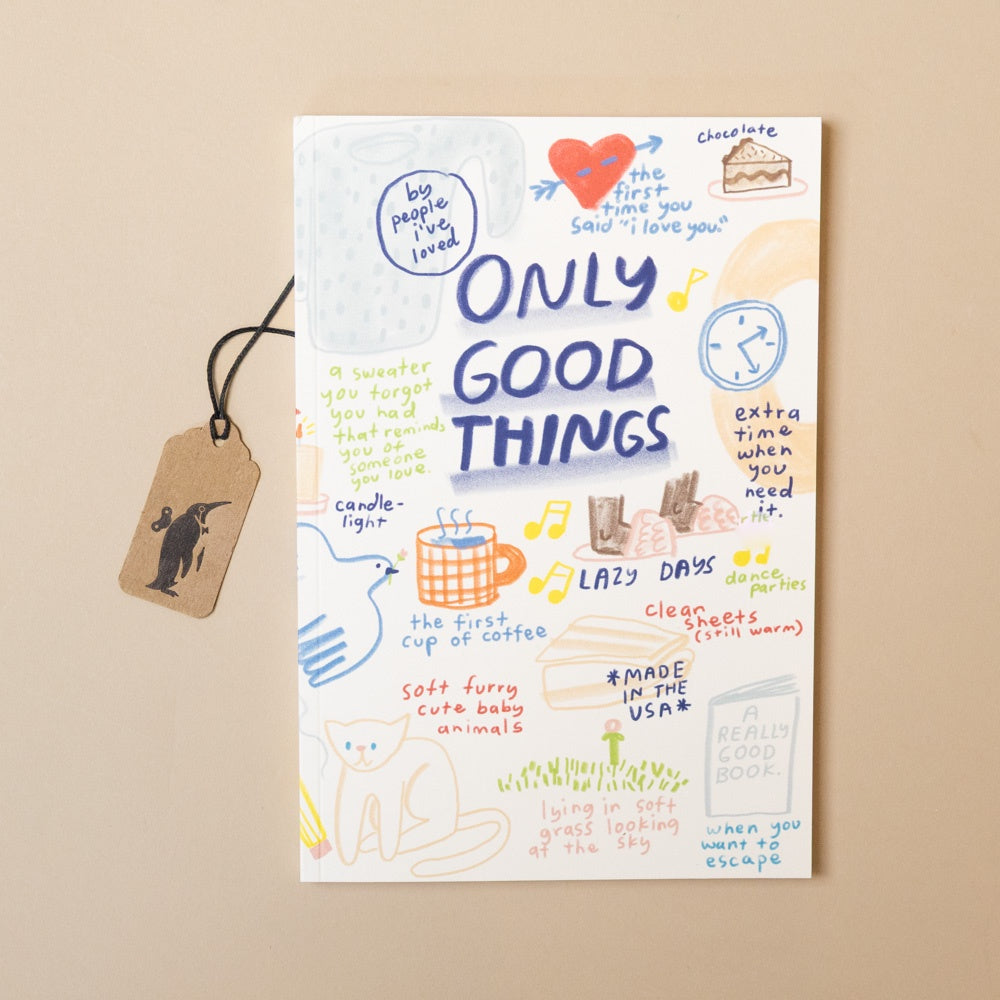 by
people
i've
loved
the
first
time you
said "i love you."
chocolate
ONLY
GOOD
THINGS
a sweater
you forgot
you had
that reminds
you of
someone
you love.
extra
time
when
you
need
it.
candle-
light
LAZY DAYS
dance
parties
the first
cup of coffee
clean
sheets
(still warm)
*MADE
IN THE
USA*
soft furry
cute baby
animals
A
REALLY
GOOD
BOOK.
lying in soft
grass looking
at the sky
when you
want to
escape